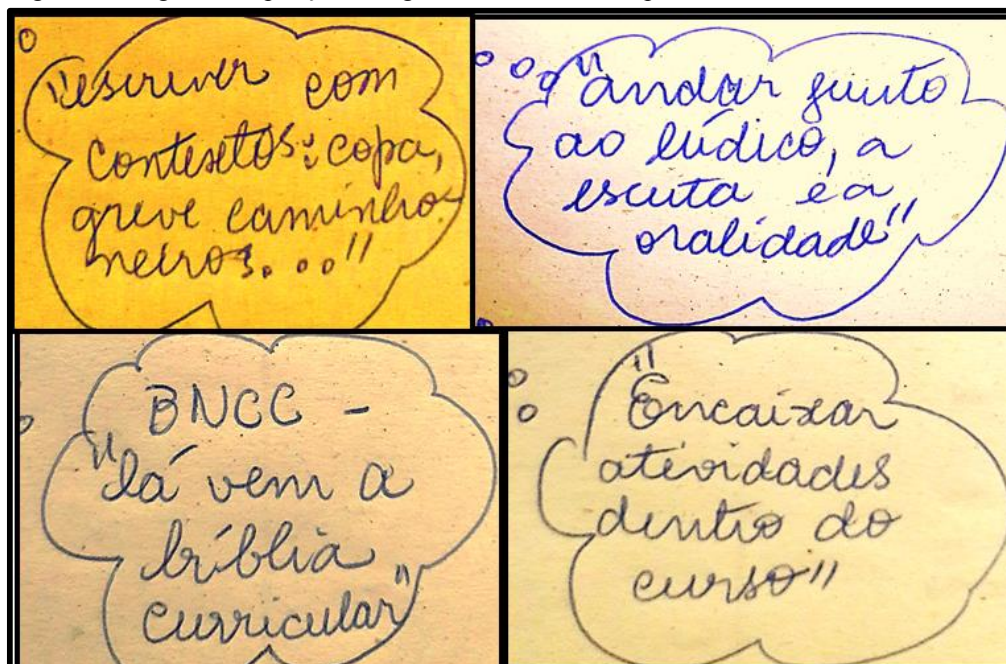 "escrever com
contextos: copa,
greve caminho-
neiros..."
"andar junto
ao lúdico, a
escuta e a
oralidade"
BNCC -
"lá vem a
bíblia
curricular"
"Encaixar
atividades
dentro do
curso"